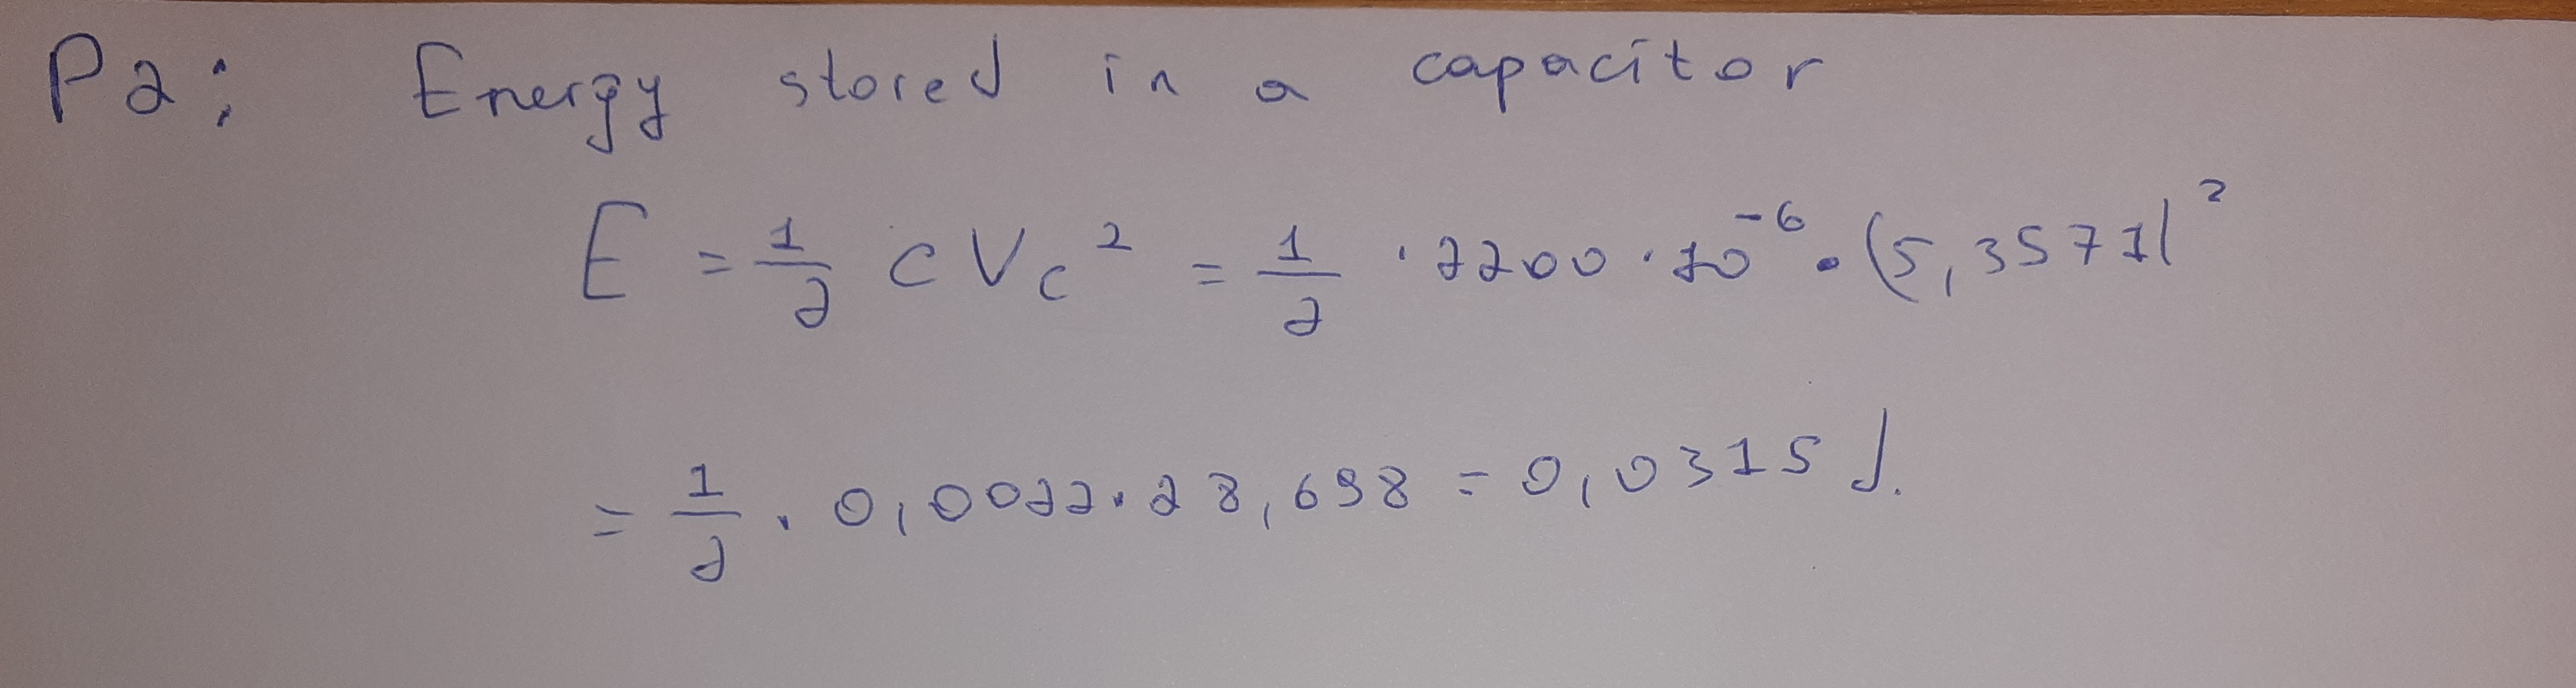 P2: Energy stored in a capacitor
E = 1/2 C Vc² = 1/2 · 2200 · 10⁻⁶ · (5,3571)²
= 1/2 · 0,0022 · 28,698 = 0,0315 J.